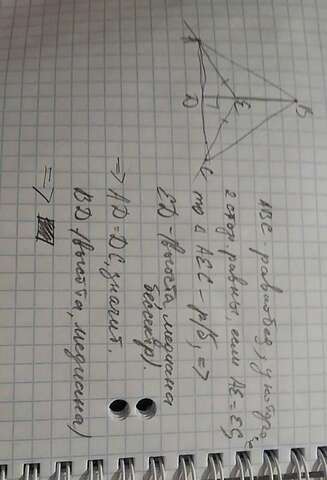 B
A
E
D
C
ABC - равнобед, у которого
2 стор. равны, если AE = EC,
то △ AEC - р/б, =>
ED - (высота, медиана
биссектр).
=> AD = DC, значит.
BD - (высота, медиана)
=>